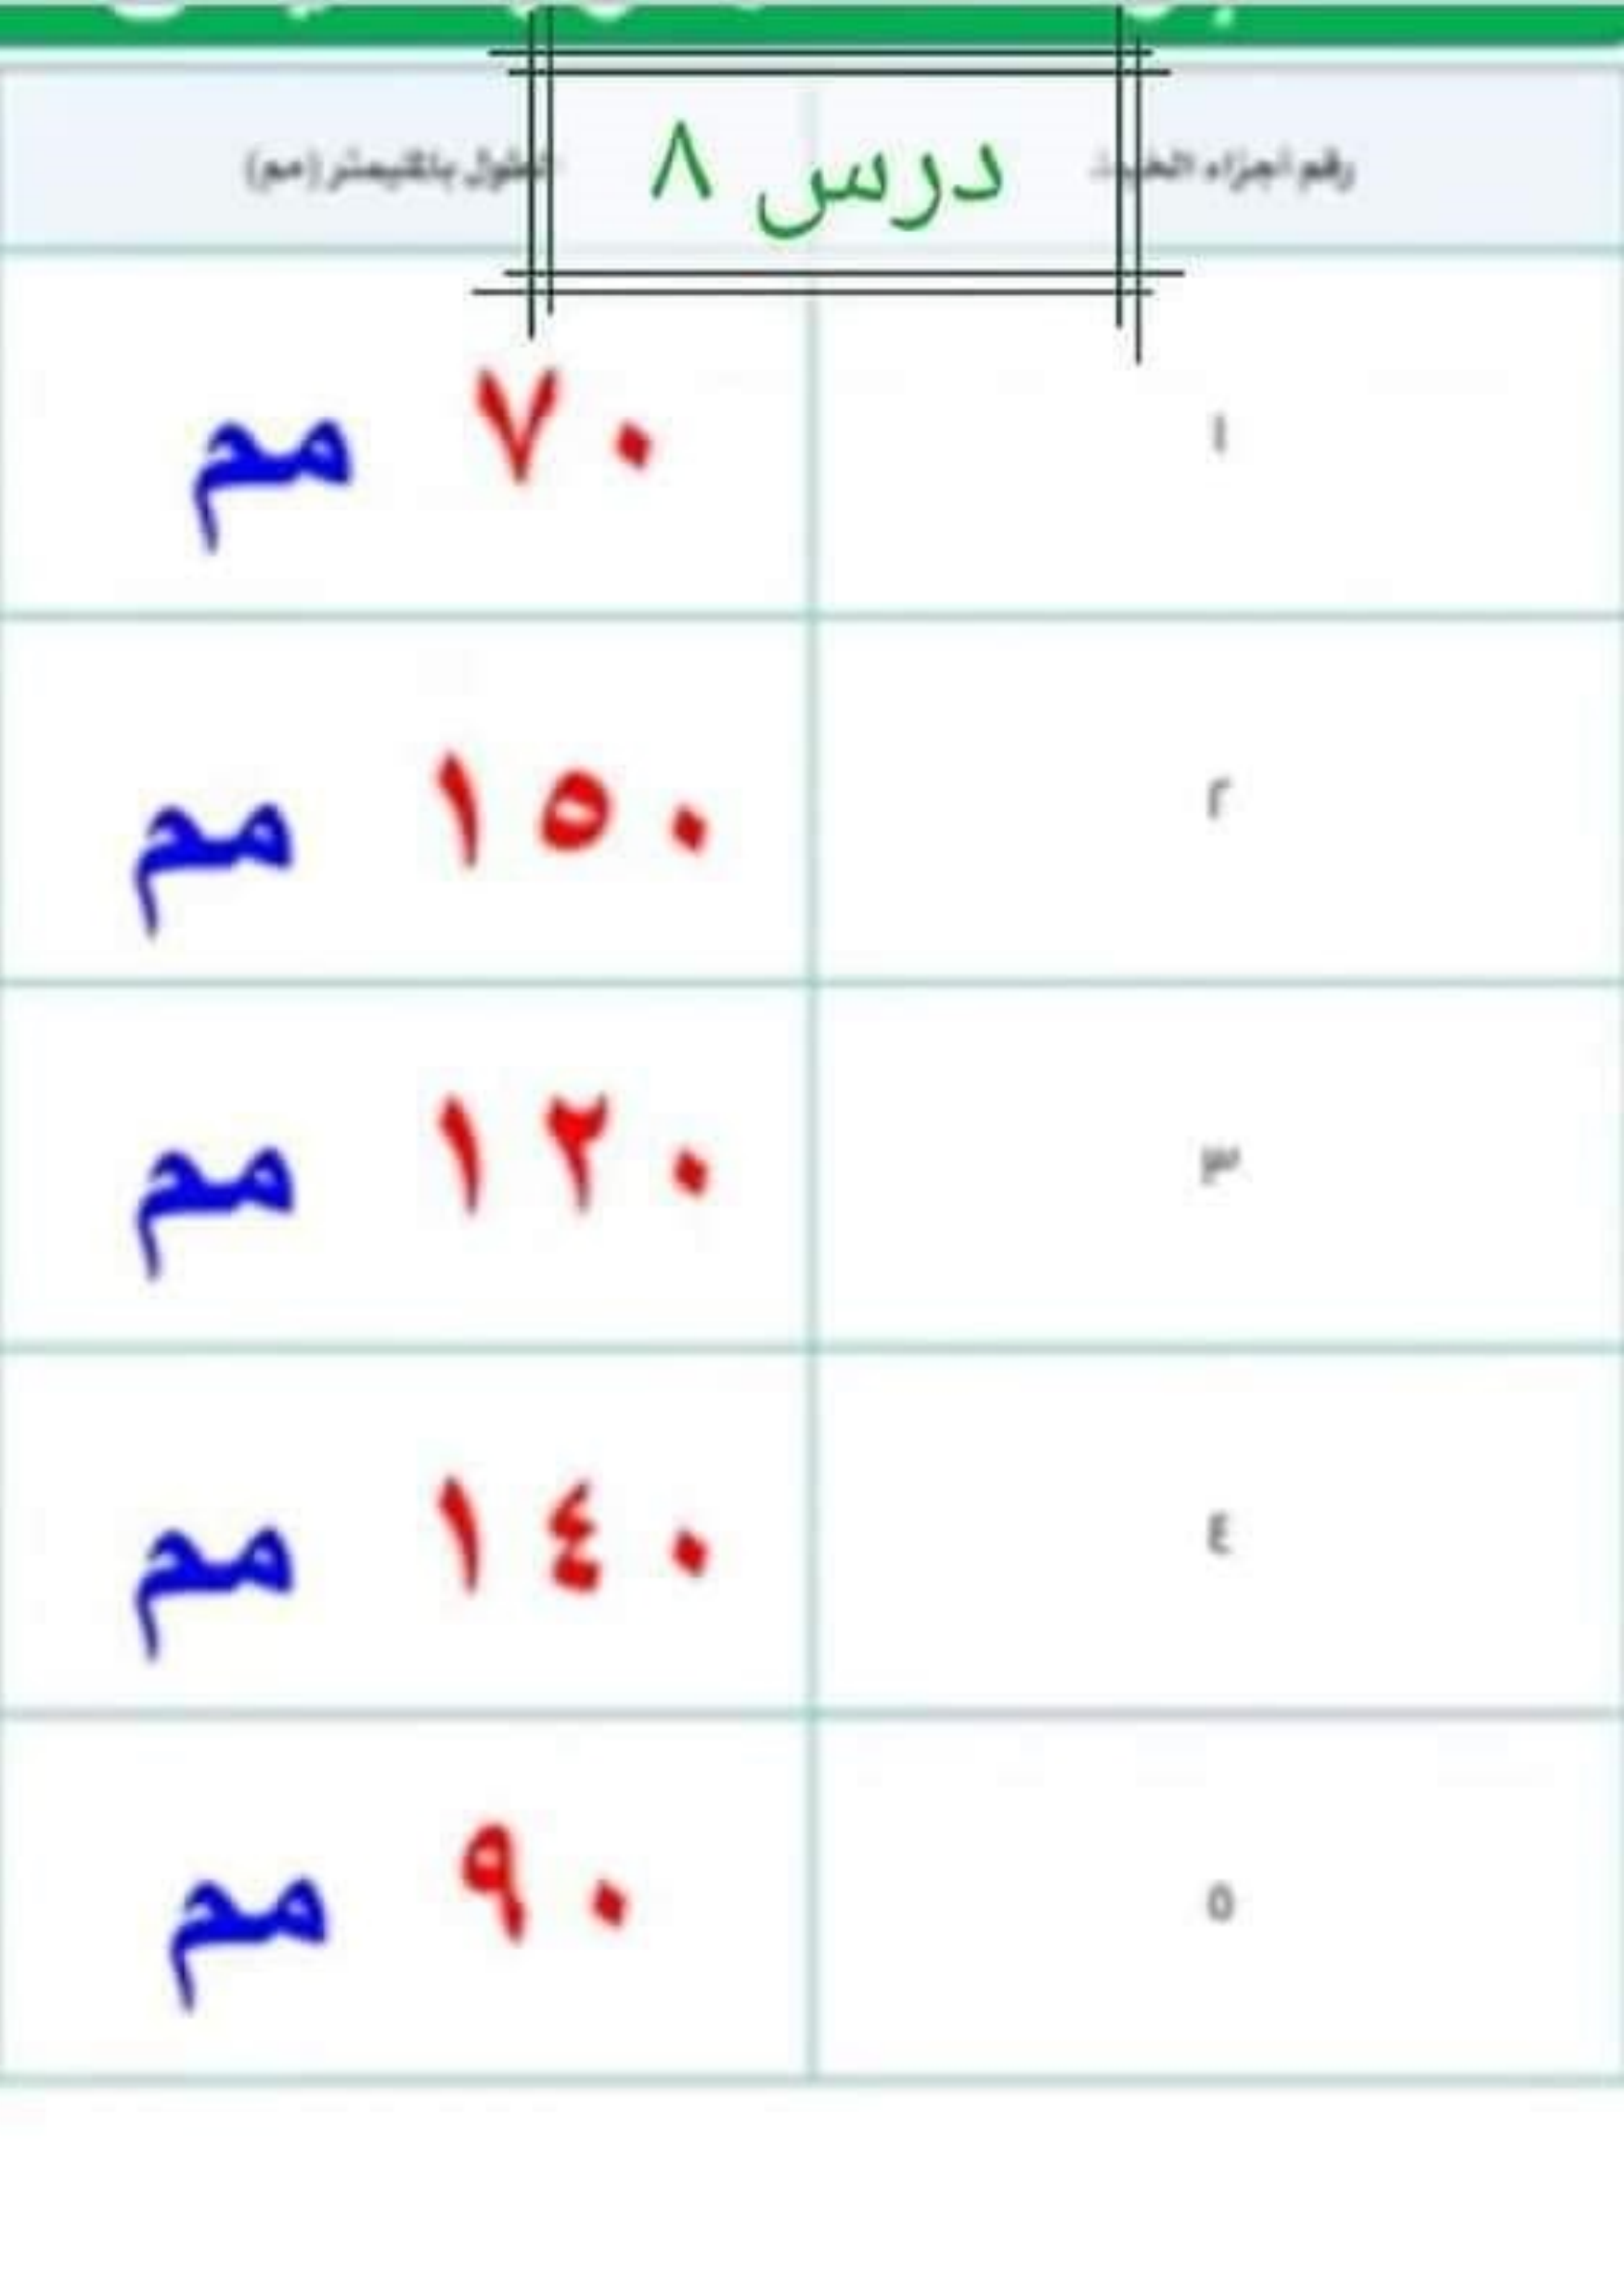 درس ٨
رقم أجزاء الخيط الطول بالمليمتر (مم)
١ ٧٠ مم
٢ ١٥٠ مم
٣ ١٢٠ مم
٤ ١٤٠ مم
٥ ٩٠ مم